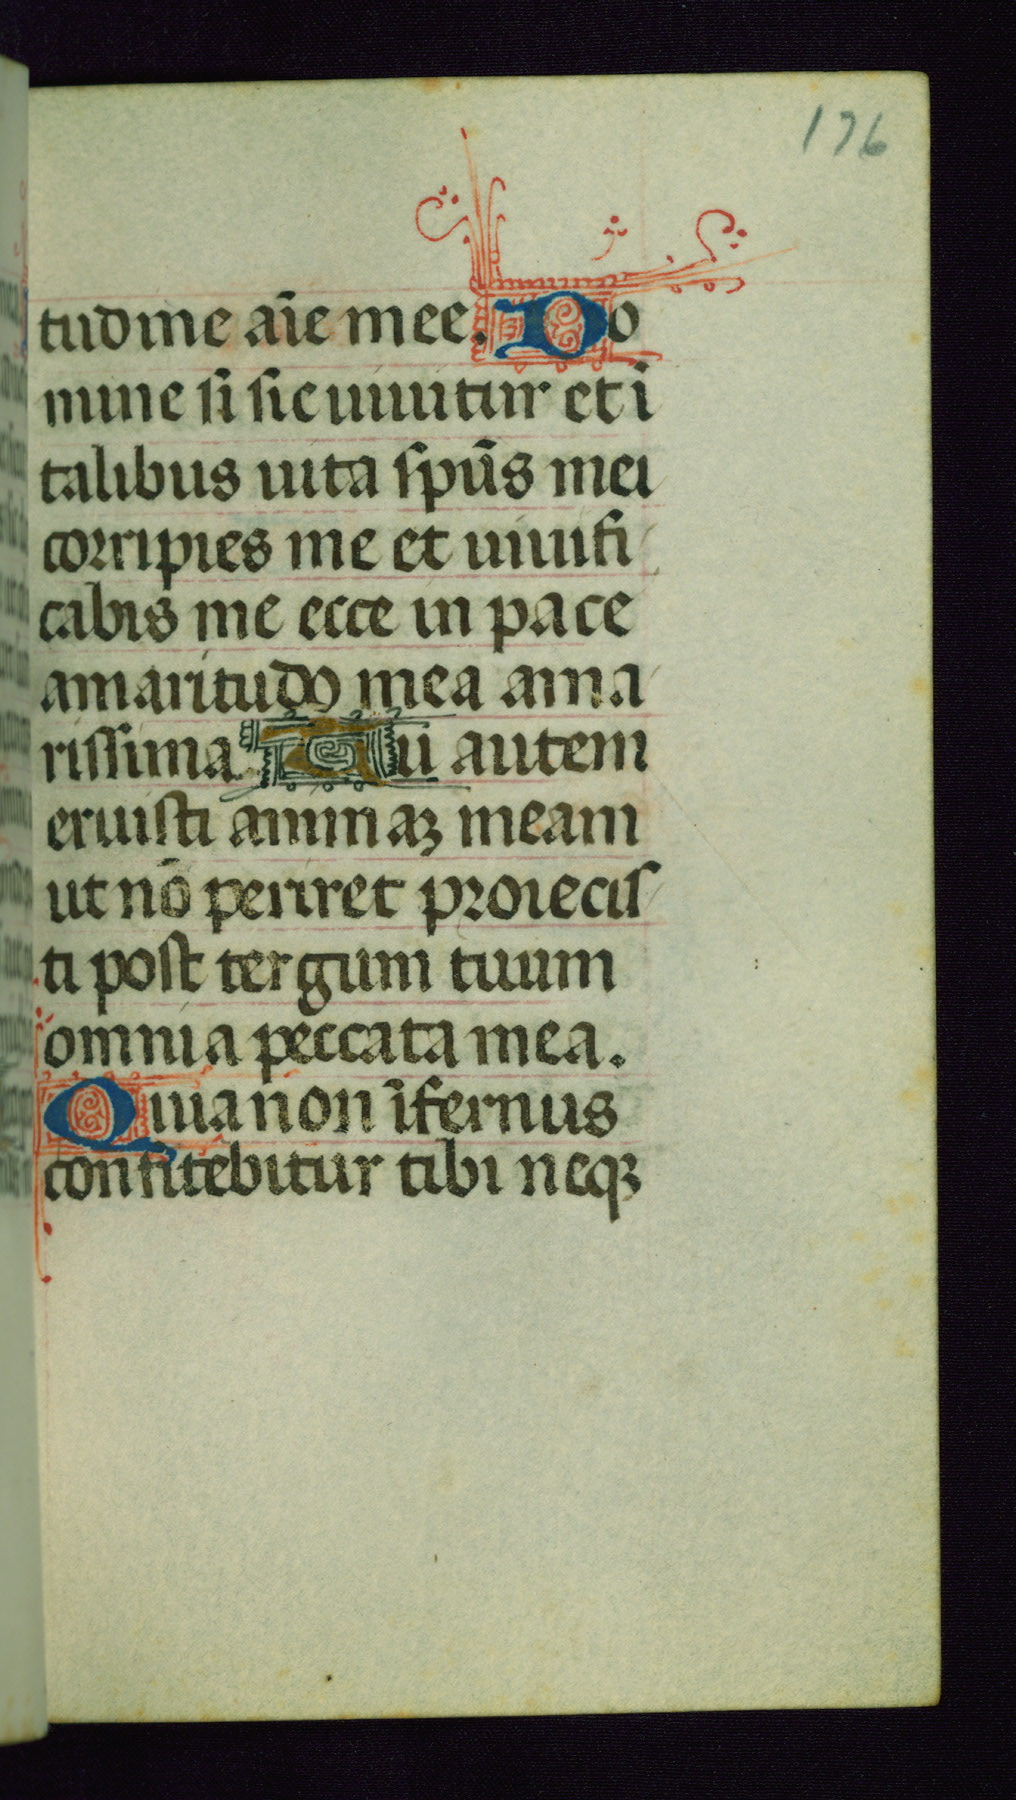 176
tudine aīe mee. Do
mine si sic uiuitur et ī
talibus uita spūs mei
corripies me et uiuifi
cabis me ecce in pace
amaritudo mea ama
rissima Tu autem
eruisti animaꝫ meam
ut nō periret proiecis
ti post tergum tuum
omnia peccata mea.
Quia non īfernus
confitebitur tibi neqꝫ